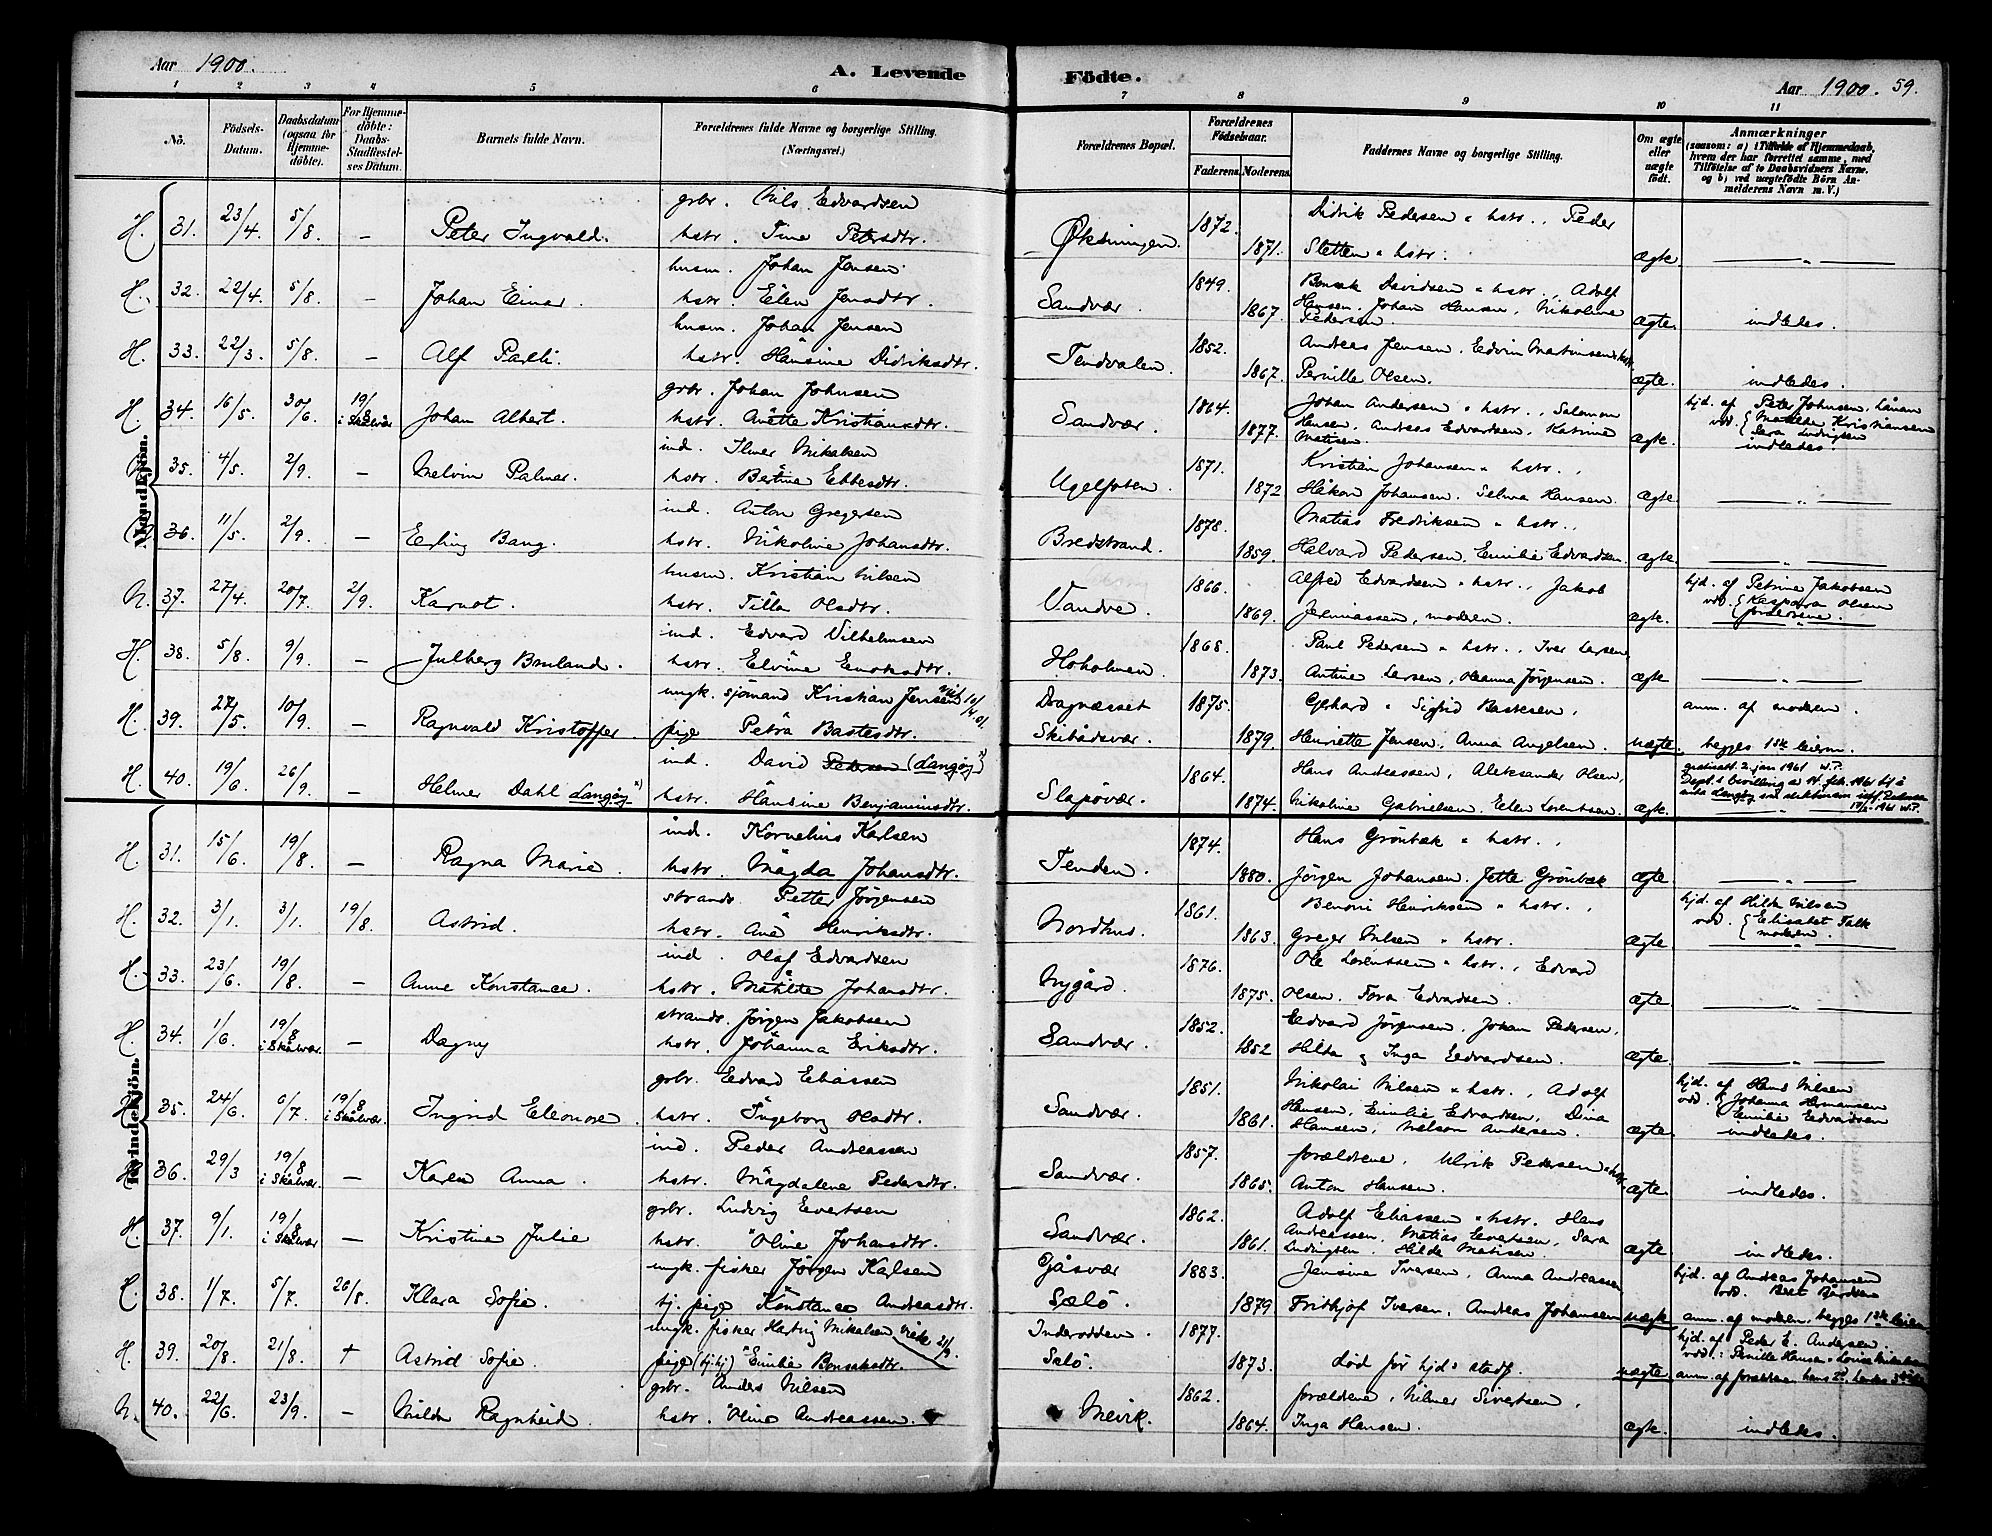 Aar 1900.
A. Levende Födte.
Aar 1900. 59.
1 2 3 4 5 6 7 8 9 10 11
No.
Födsels-Datum.
Daabsdatum (ogsaa for Hjemmedöbte).
For Hjemmedöbte: Daabs-Stadfæstelses Datum.
Barnets fulde Navn.
Forældrenes fulde Navne og borgerlige Stilling.
(Næringsvei.)
Forældrenes Bopæl.
Forældrenes Födselsaar.
Faderens. Moderens.
Faddernes Navne og borgerlige Stilling.
Om ægte eller uægte født.
Anmærkninger
(saasom: a) i Tilfælde af Hjemmedaab, hvem der har forrettet samme, med Tilföielse af to Daabsvidners Navne. og b) ved uægtefödte Börn Anmelderens Navn m. V.)
Mandkjön.
H. 31. 23/4. 5/8. - Peter Ingvald. gbr. Nils Edvardsen Øksningen. 1872. Didrik Pedersen " hstr., Peder
hstr. Tine Petersdtr. 1871. Sletten " hstr. ægte. "
H. 32. 22/4. 5/8. - Johan Einar. husm. Johan Jensen Sandvær. 1849. Bensak Davidsen " hstr., Adolf
hstr. Elen Jensdtr. 1867. Hansen, Johan Hansen, Nikoline Pedersen. ægte. indledes.
H. 33. 22/3. 5/8. - Alf Palli. husm. Johan Jensen Tendvalen. 1852. Andreas Jensen, Edvin Martinsen " hstr.
hstr. Hansine Didriksdtr. 1867. Pernille Olsen. ægte. indledes.
H. 34. 16/5. 30/6. 19/8 i Skålvær Johan Albert. gbr. Johan Johnsen Sandvær. 1864. Johan Andersen " hstr., Salomon hjd. af Peter Johnsen, Lånan
hstr. Anette Kristiansdtr. 1877. Hansen, Andreas Edvardsen, Katrine Matisen. ægte. vdd. { Matilde Kristiansen Sara Ludvigsen indledes.
35. 4/5. 2/9. - Melvin Palmar. ind. Ilmer Mikalsen Ugelfoten. 1871. Kristian Johansen " hstr.,
hstr. Bertine Ebbesdtr. 1872 Håkon Johansen. Selma Hansen. ægte. "
36. 11/5. 2/9. - Erling Bang. ind. Anton Gregersen Bredstrand. 1878. Matias Fredriksen " hstr.,
hstr. Nikoline Johansdtr. 1859. Halvard Pedersen, Emilie Edvardsen. ægte. "
N. 37. 27/4. 20/7. 2/9. Karnot. husm. Kristian Nilsen Vandve. 1866. Alfred Edvardsen " hstr., Jakob hjd. af Petrine Jakobsen
hstr. Tilla Olsdtr. 1869. Jeremiassen, moderen. ægte. vdd. { Kaspara Olsen forældrene.
H. 38. 5/8. 9/9. - Julberg Bruland. ind. Edvard Vilhelmsen Hoholmen. 1868. Paul Pedersen " hstr., Iver Larsen,
hstr. Elvine Enoksdtr. 1873. Antine Larsen, Oleanna Jørgensen. ægte "
H. 39. 27/5. 10/9. - Ragnvald Kristoffer. ungk. sjømand Kristian Jensen Dragnæsset 1875. Gerhard " Sigfrid Bastesen, anm. af moderen.
pige Petra Bastesdtr. Skibådsvær. 1879. Henriette Jensen, Anna Angelsen. uægte. begges 1ste leierm.
H. 40. 19/6. 26/9. - Helmer Dahl Langøy x) ind. David Petersen (Langøy x) Slapøvær. 1864. Hans Andreassen, Aleksander Olsen,
hstr. Hansine Benjaminsdtr. 1874. Nikoline Gabrielsen. Ellen Lorentsen. ægte.
Kvindekjön.
H. 31. 15/6. 19/8. - Ragna Marie. ind. Kornelius Karlsen Tenden. 1874. Hans Grönbæk " hstr.,
hstr. Magda Johansdtr. 1880. Jörgen Johansen. Jette Grönbæk ægte. "
H. 32. 3/1. 3/1. 19/8. Astrid. strands. Petter Jørgensen Nordhus. 1861. Benoni Henriksen " hstr., hjd. af Hilk Nilsen
hstr. Ane Henriksdtr. 1863. Greger Nilsen " hstr. ægte. vdd. { Elisabet Falk moderen
33. 23/6. 19/8. - Anne Konstance. ind. Olaf Edvardsen Nygård. 1876. Ole Lorentssen " hstr., Edvard
hstr. Matilde Johansdtr. 1875. Olsen. Tora Edvardsen. ægte "
H. 34. 1/6. 19/8 i Skålvær. - Dagny strands. Jørgen Jakobsen Sandvær. 1852. Edvard Jørgensen, Johan Pedersen,
hstr. Johanna Eriksdtr. 1852 Hilda og Inga Eedvardsen. ægte. "
35. 24/6. 6/7. 19/8 i Skålvær. Ingrid Eleonore. gbr. Edvard Eliassen Sandvær. 1851. Nikolai Nilsen " hstr., Adolf hjd. af Hans Nilsen
hstr. Ingeborg Olsdtr. 1861. Hansen, Emilie Edvardsen, Dina Hansen, Nelson Andersen. ægte. vdd. { Johanna Hermansen Emilie Eedvardsen indledes.
36. 29/3 19/8 i Skålvær - Karen Anna. ind. Peder Andreassen Sandvær. 1857. forældrene, Ulrik Pedersen " hstr
hstr. Magdalene Pedersdtr. 1865. Anton Hansen. ægte indledes.
H. 37. 9/1. 19/8 i Skålvær - Kristine Julie gbr. Ludvig Evertsen Sandvær. 1862. Adolf Eliassen " hstr. Hans
hstr. Oline Johansdtr. 1861. Andreassen, Matias Evertsen, Sara Ludvigsen, Hilda Matisen. ægte indledes.
H. 38. 1/7. 5/7. 26/8. Klara Sofie. ungk. fisker Jørgen Karlsen Gåsvær 1883. Jensine Iversen, Anna Andreassen hjd. af Andreas Johansen
tj. pige Konstance Andreasdtr. Sælö. 1879. Frithjof Iversen, Andreas Johansen uægte vdd. Beret Bårdsen anm. af moderen, begges 1ste leierm
H. 39. 20/8. 21/8. + Astrid Sofie. ungk. fisker Hartvig Mikalsen Inderodden 1877. hjd. af Peder E. Andersen.
pige (tj.hj) Emilie Bensaksdtr. Salö. 1873. död för hjd.s stadf. uægte. vdd.: Pernille Hansen " Lovise anm. af forældrene, hans 2., hendes
N. 40. 22/6. 23/9. - Milda Ragnheid. gbr. Anders Nilsen Meivik. 1862. forældrene, Hilmer Sivertsen,
hstr. Oline Andreassen. 1864. Inga Hansen. ægte. indledes.